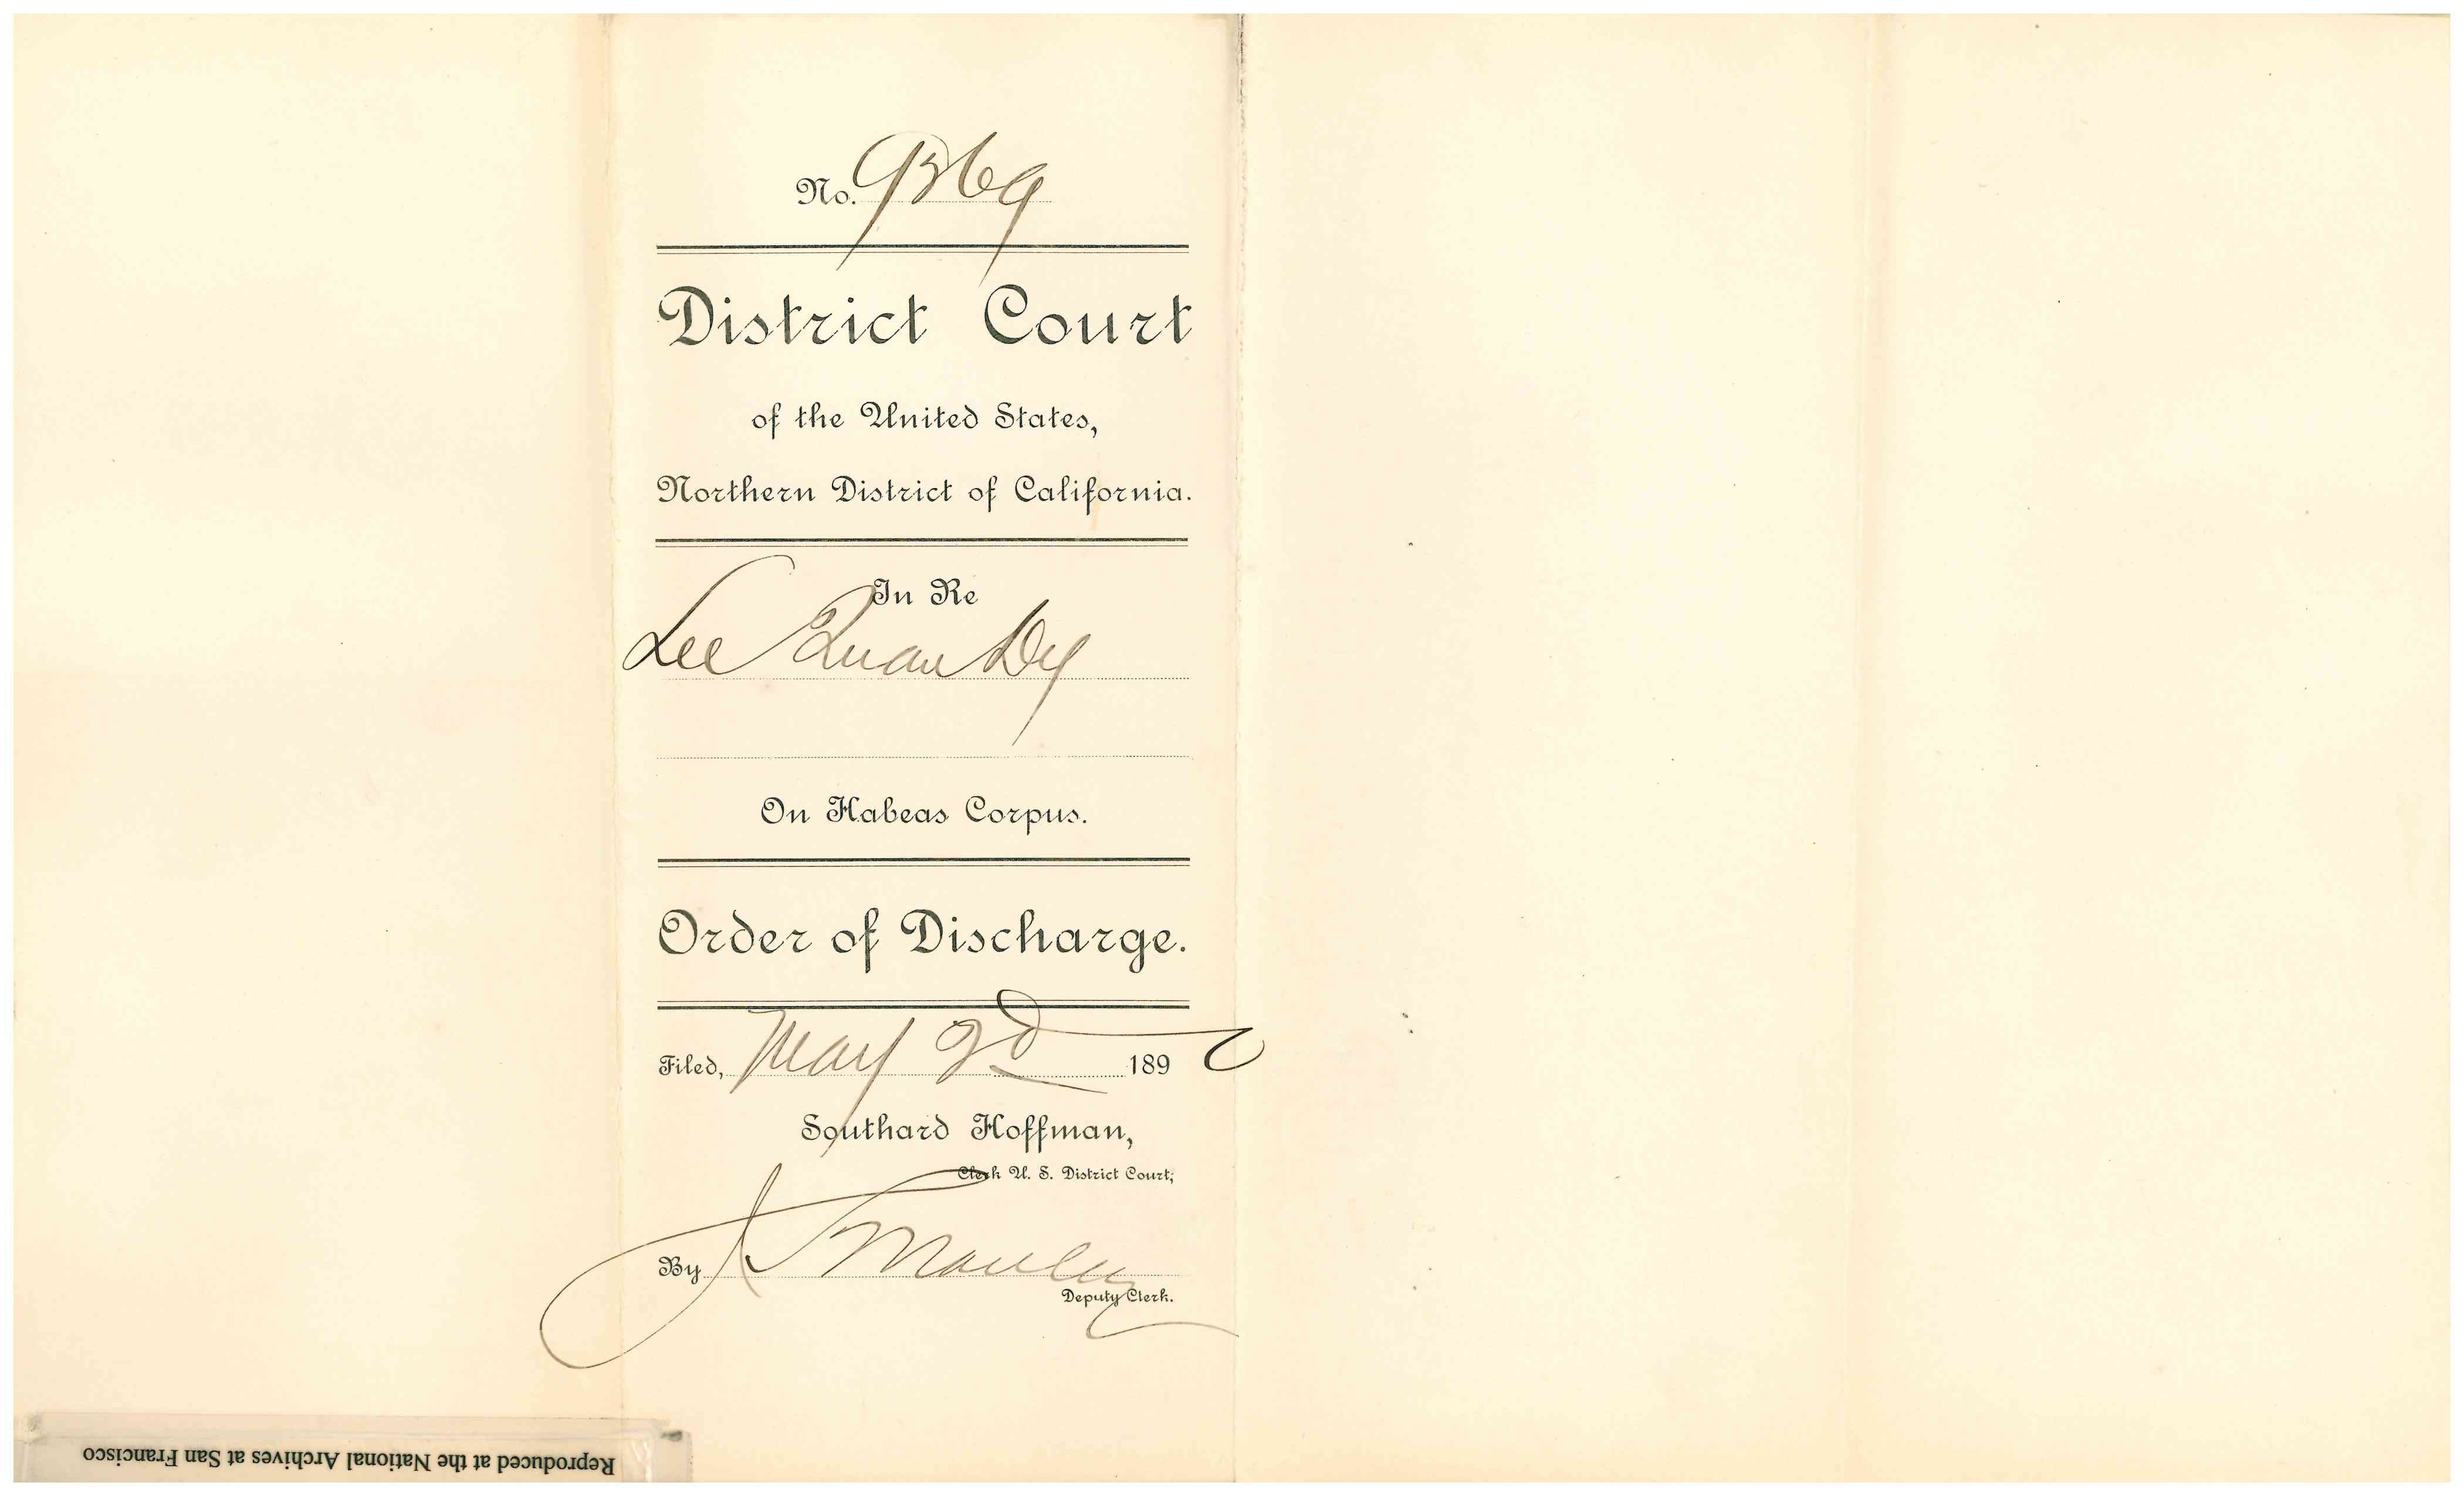 No. 9369
District Court
of the United States,
Northern District of California.
In Re
Lee Quan Dy
On Habeas Corpus.
Order of Discharge.
Filed, May 2d 1892
Southard Hoffman,
Clerk U. S. District Court,
By
Deputy Clerk.
Reproduced at the National Archives at San Francisco